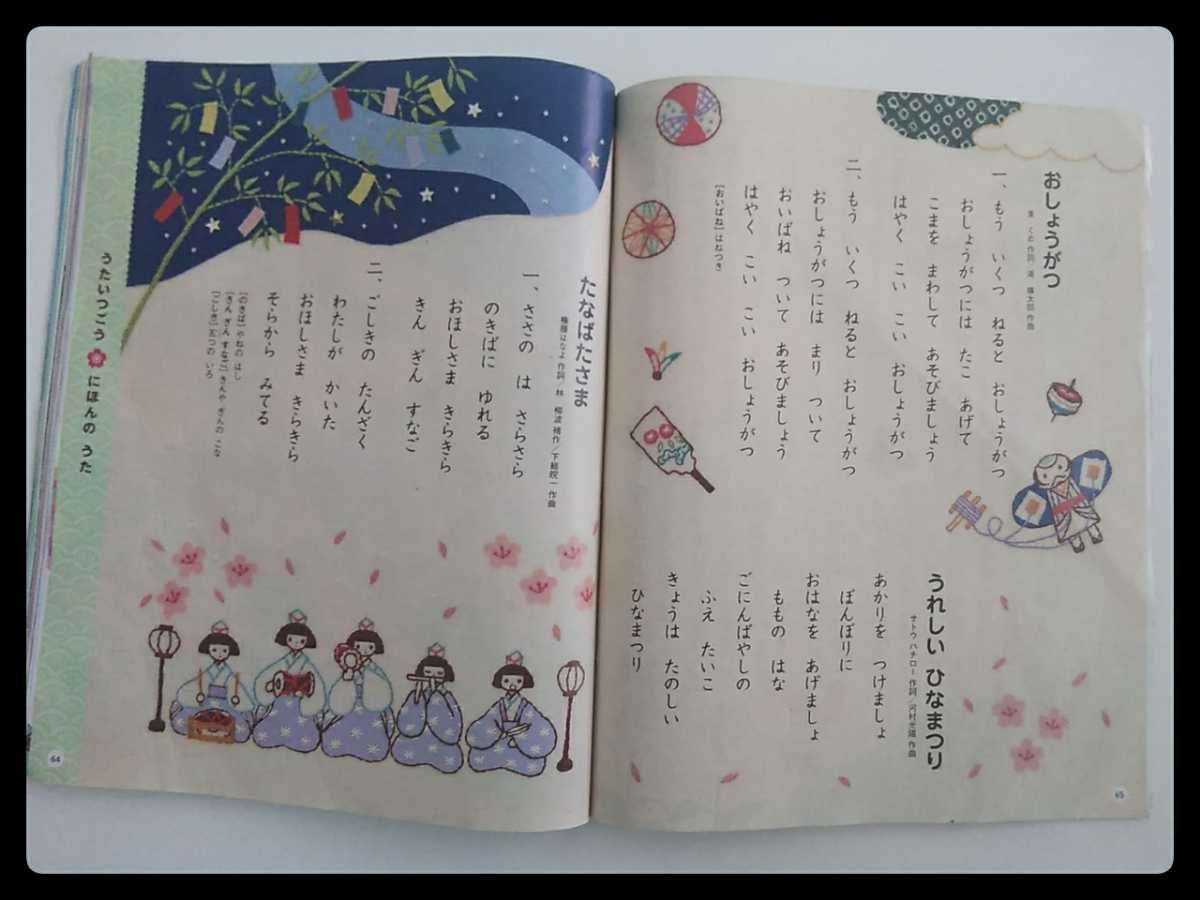 おしょうがつ
東 くめ 作詞／滝 廉太郎 作曲
一、もう いくつ ねると おしょうがつ
おしょうがつには たこ あげて
こまを まわして あそびましょう
はやく こい こい おしょうがつ
二、もう いくつ ねると おしょうがつ
おしょうがつには まり ついて
おいばね ついて あそびましょう
はやく こい こい おしょうがつ
[おいばね]はねつき
うれしい ひなまつり
サトウ ハチロー 作詞／河村光陽 作曲
あかりを つけましょ
ぼんぼりに
おはなを あげましょ
ももの はな
ごにんばやしの
ふえ たいこ
きょうは たのしい
ひなまつり
65
たなばたさま
権藤はなよ 作詞／林 柳波 補作／下総皖一 作曲
一、ささの は さらさら
のきばに ゆれる
おほしさま きらきら
きん ぎん すなご
二、ごしきの たんざく
わたしが かいた
おほしさま きらきら
そらから みてる
[のきば]やねの はし
[きん ぎん すなご]きんや ぎんの こな
[ごしき]五つの いろ
うたいつごう にほんの うた
64